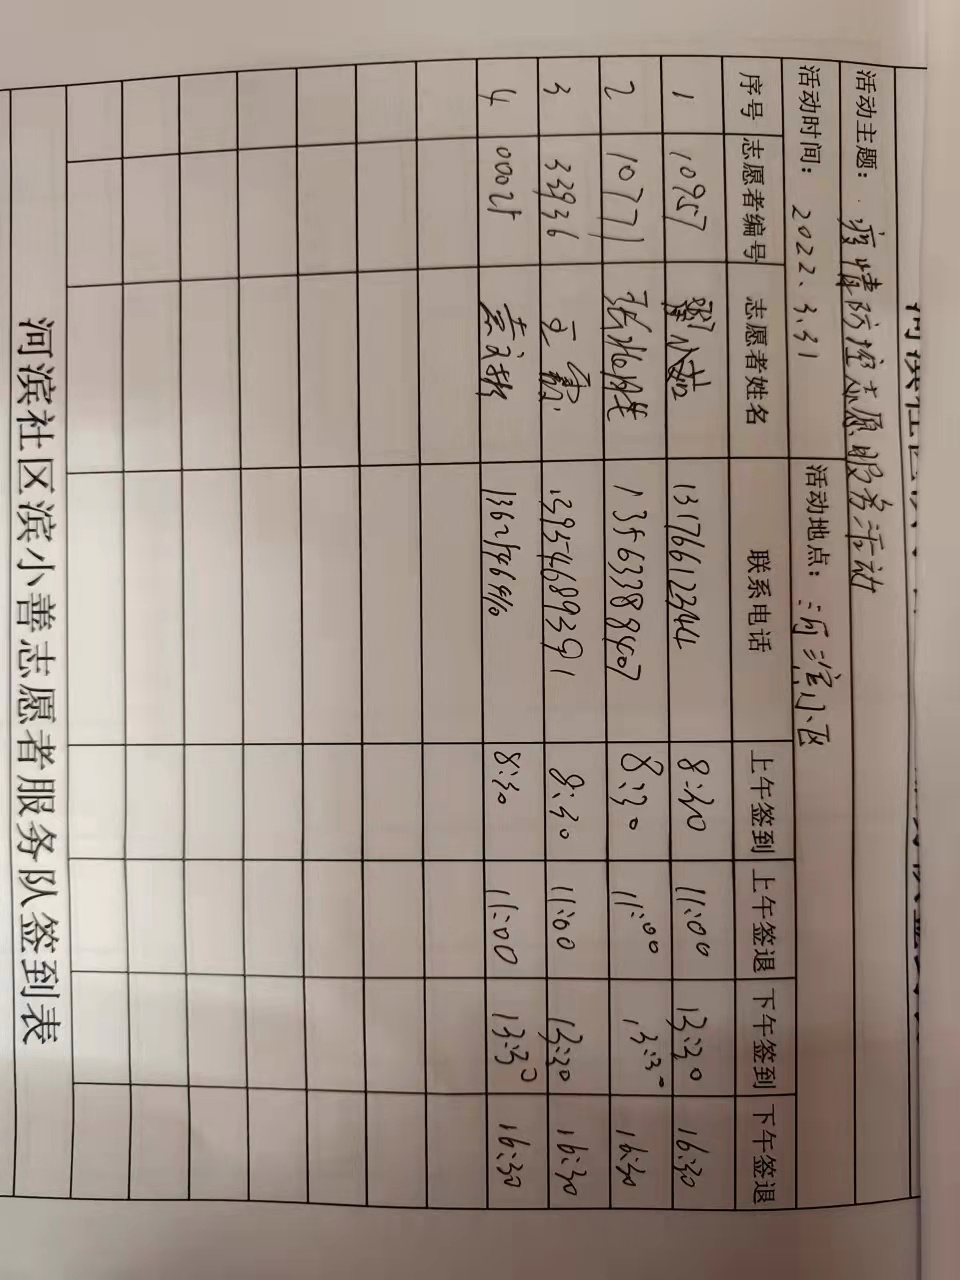 活动主题：疫情防控志愿服务活动
活动时间：2022.3.31 活动地点：河滨小区
序号 志愿者编号 志愿者姓名 联系电话 上午签到 上午签退 下午签到 下午签退
1 10957 13176612344 8:30 11:00 13:30 16:30
2 10771 13563388407 8:30 11:00 13:30 16:30
3 33936 王 13954689391 8:30 11:00 13:30 16:30
4 8:30 11:00 13:30 16:30
河滨社区滨小善志愿者服务队签到表